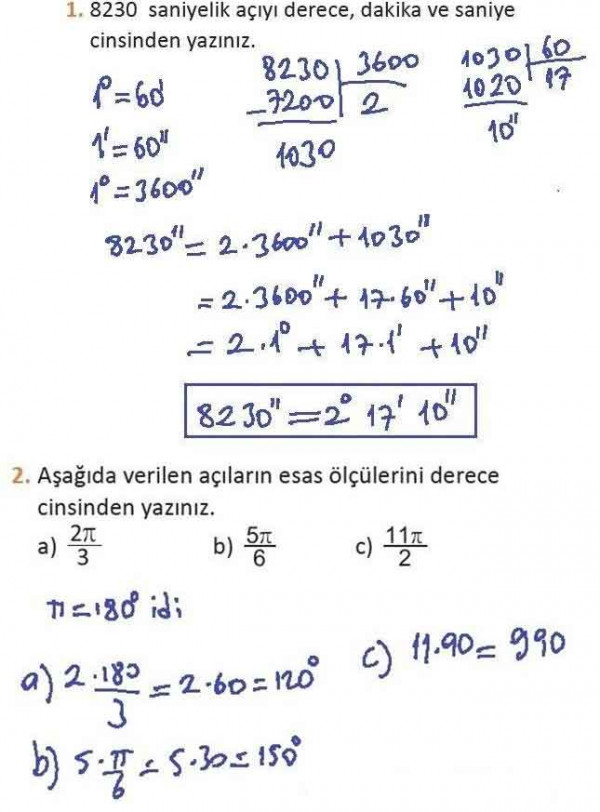 1. 8230 saniyelik açıyı derece, dakika ve saniye
cinsinden yazınız.
1° = 60'
1' = 60"
1° = 3600"
8230 | 3600
-7200 | 2
1030
1030 | 60
1020 | 17
10"
8230" = 2·3600" + 1030"
= 2·3600" + 17·60" + 10"
= 2·1° + 17·1' + 10"
8230" = 2° 17' 10"
2. Aşağıda verilen açıların esas ölçülerini derece
cinsinden yazınız.
a) 2π/3 b) 5π/6 c) 11π/2
π = 180° idi
a) 2·180/3 = 2·60 = 120°
b) 5·π/6 = 5·30 = 150°
c) 11·90 = 990